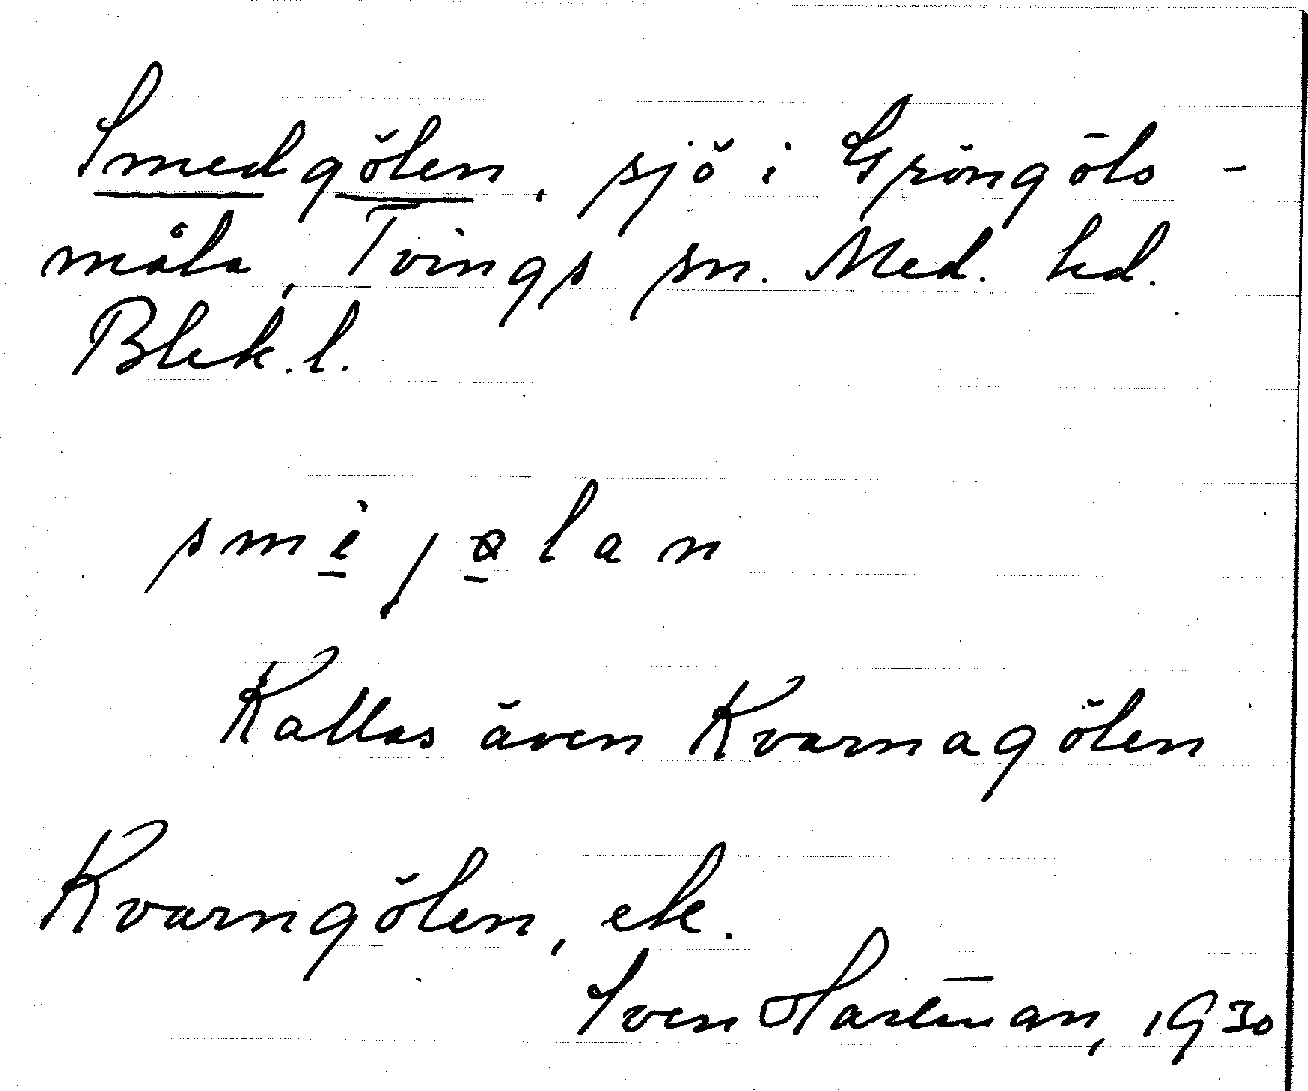 Smedgölen, sjö i Gröngöls-
måla, Tvings sn. Med. hd.
Blek. l.
smi̱jø̱lan
Kallas även Kvarnagölen
Kvarngölen, ek.
Sven Hartman, 1930